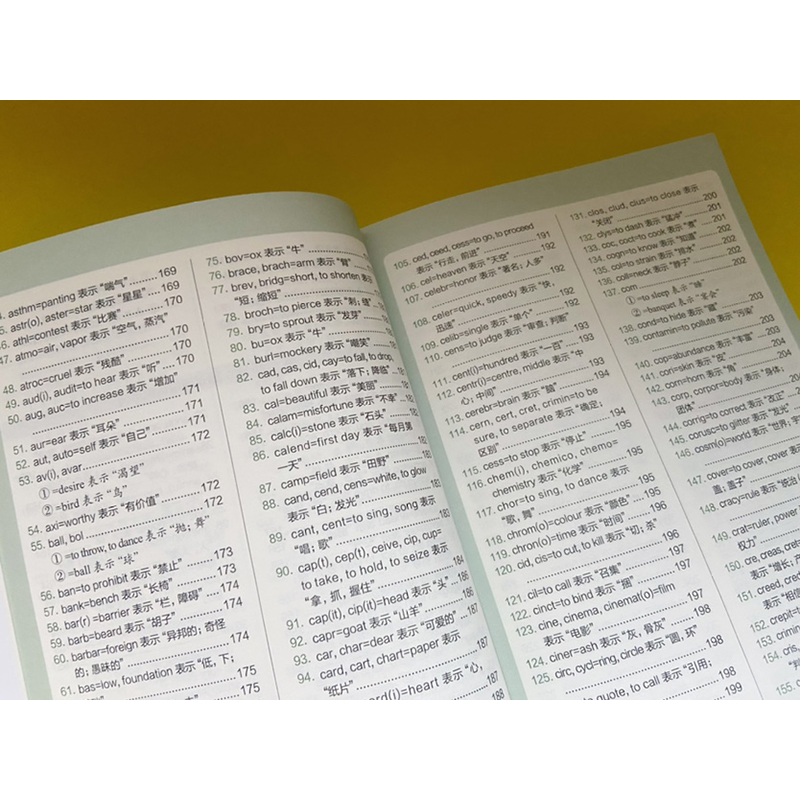 asthm=panting 表示 "喘气" .........169
astr(o), aster=star 表示 "星星" ....169
46. athl=contest 表示 "比赛" ..........170
47. atmo=air, vapor 表示 "空气, 蒸汽"
....................170
48. atroc=cruel 表示 "残酷" ..........170
49. aud(i), audit=to hear 表示 "听" ....170
50. aug, auc=to increase 表示 "增加"
....................171
51. aur=ear 表示 "耳朵" ..........171
52. aut, auto=self 表示 "自己" ..........172
53. av(i), avar....................172
①=desire 表示 "渴望"
②=bird 表示 "鸟"
54. axi=worthy 表示 "有价值" ..........172
55. ball, bol ....................172
①=to throw, to dance 表示 "抛; 舞"
②=ball 表示 "球"
56. ban=to prohibit 表示 "禁止" ..........173
57. bank=bench 表示 "长椅" ..........173
58. bar(r) =barrier 表示 "栏, 障碍" ....174
59. barb=beard 表示 "胡子" ..........174
60. barbar=foreign 表示 "异邦的; 奇怪
的; 愚昧的" ....................174
61. bas=low, foundation 表示 "低, 下;
175
75. bov=ox 表示 "牛"
76. brace, brach=arm 表示 "臂"
77. brev, bridg=short, to shorten 表示
"短; 缩短"
78. broch=to pierce 表示 "刺; 锥"
79. bry=to sprout 表示 "发芽"
80. bu=ox 表示 "牛"
81. burl=mockery 表示 "嘲笑"
82. cad, cas, cid, cay=to fall, to drop,
to fall down 表示 "落下; 降临"
83. cal=beautiful 表示 "美丽"
84. calam=misfortune 表示 "不幸"
85. calc(i)=stone 表示 "石头"
86. calend=first day 表示 "每月第
一天"
87. camp=field 表示 "田野"
88. cand, cend, cens=white, to glow
表示 "白; 发光"
89. cant, cent=to sing, song 表示
"唱; 歌"
90. cap(t), cep(t), ceive, cip, cup=
to take, to hold, to seize 表示
"拿, 抓, 握住" ..........184
91. cap(it), cip(it)=head 表示 "头" ....186
92. capr=goat 表示 "山羊" ..........186
93. car, char=dear 表示 "可爱的" ....187
94. card, cart, chart=paper 表示
"纸片" ....................187
(i)=heart 表示 "心,
188
105. ced, ceed, cess=to go, to proceed
表示 "行走, 前进" ..........191
106. cel=heaven 表示 "天空" ..........192
107. celebr=honor 表示 "著名; 人多"
....................192
108. celer=quick, speedy 表示 "快,
迅速" ....................192
109. celib=single 表示 "单个" ..........192
110. cens=to judge 表示 "审查; 判断"
....................193
111. cent(i)=hundred 表示 "一百" ....193
112. centr(i)=centre, middle 表示 "中
心; 中间" ....................193
113. cerebr=brain 表示 "脑" ..........194
114. cern, cert, cret, crimin=to be
sure, to separate 表示 "确定,
区别" ....................194
115. cess=to stop 表示 "停止" ..........195
116. chem(i), chemico, chemo=
chemistry 表示 "化学" ..........195
117. chor=to sing, to dance 表示
"歌, 舞" ....................195
118. chrom(o)=colour 表示 "颜色" ....195
119. chron(o)=time 表示 "时间" ..........196
120. cid, cis=to cut, to kill 表示 "切; 杀"
....................196
121. cil=to call 表示 "召集" ..........197
122. cinct=to bind 表示 "捆" ..........197
123. cine, cinema, cinemat(o)=film
表示 "电影" ....................197
124. ciner=ash 表示 "灰, 骨灰" ..........198
125. circ, cycl=ring, circle 表示 "圆, 环"
....................198
quote, to call 表示 "引用;
199
131. clos, clud, clus=to close 表示
"关闭" ....................200
132. clys=to dash 表示 "猛冲" ..........201
133. coc, coct=to cook 表示 "煮" ....201
134. cogn=to know 表示 "知道" ....202
135. col=to strain 表示 "排水" ..........202
136. coll=neck 表示 "脖子" ..........202
137. com ....................202
①=to sleep 表示 "睡"
②=banquet 表示 "宴会"
138. cond=to hide 表示 "藏" ..........203
139. contamin=to pollute 表示 "污染"
....................203
140. cop=abundance 表示 "丰富" ....203
141. cori=skin 表示 "皮" ..........204
142. corn=horn 表示 "角" ..........204
143. corp, corpor=body 表示 "身体,
团体"
144. corrig=to correct 表示 "改正"
145. corusc=to glitter 表示 "发光"
146. cosm(o)=world 表示 "世界; 宇
147. cover=to cover, cover 表示
盖; 盖子"
148. cracy=rule 表示 "统治
149. crat=ruler, power
权力"
150. cre, creas, cret
表示 "增长; 产
151. creed, cred
表示 "相信
152. crepit=
153. crimin
154. cris,
155. c